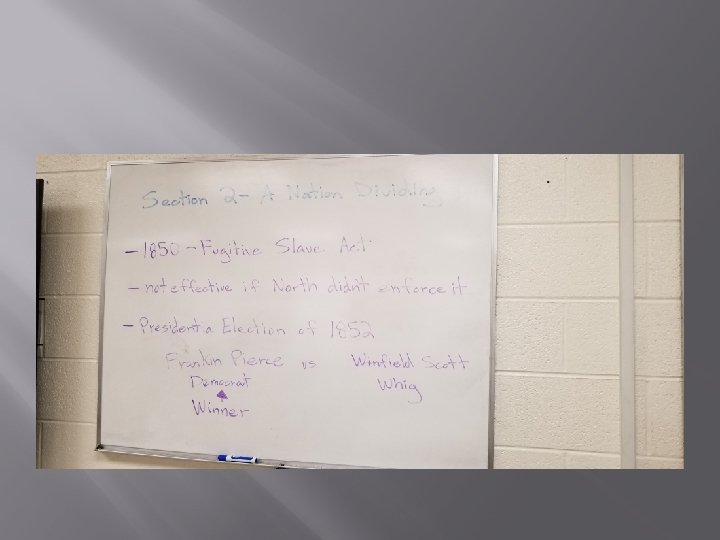 Section 2- A Nation Dividing
- 1850 - Fugitive Slave Act
- not effective if North didn't enforce it
- Presidenta Election of 1852
Franklin Pierce vs Winfield Scott
Democrat Whig
Winner